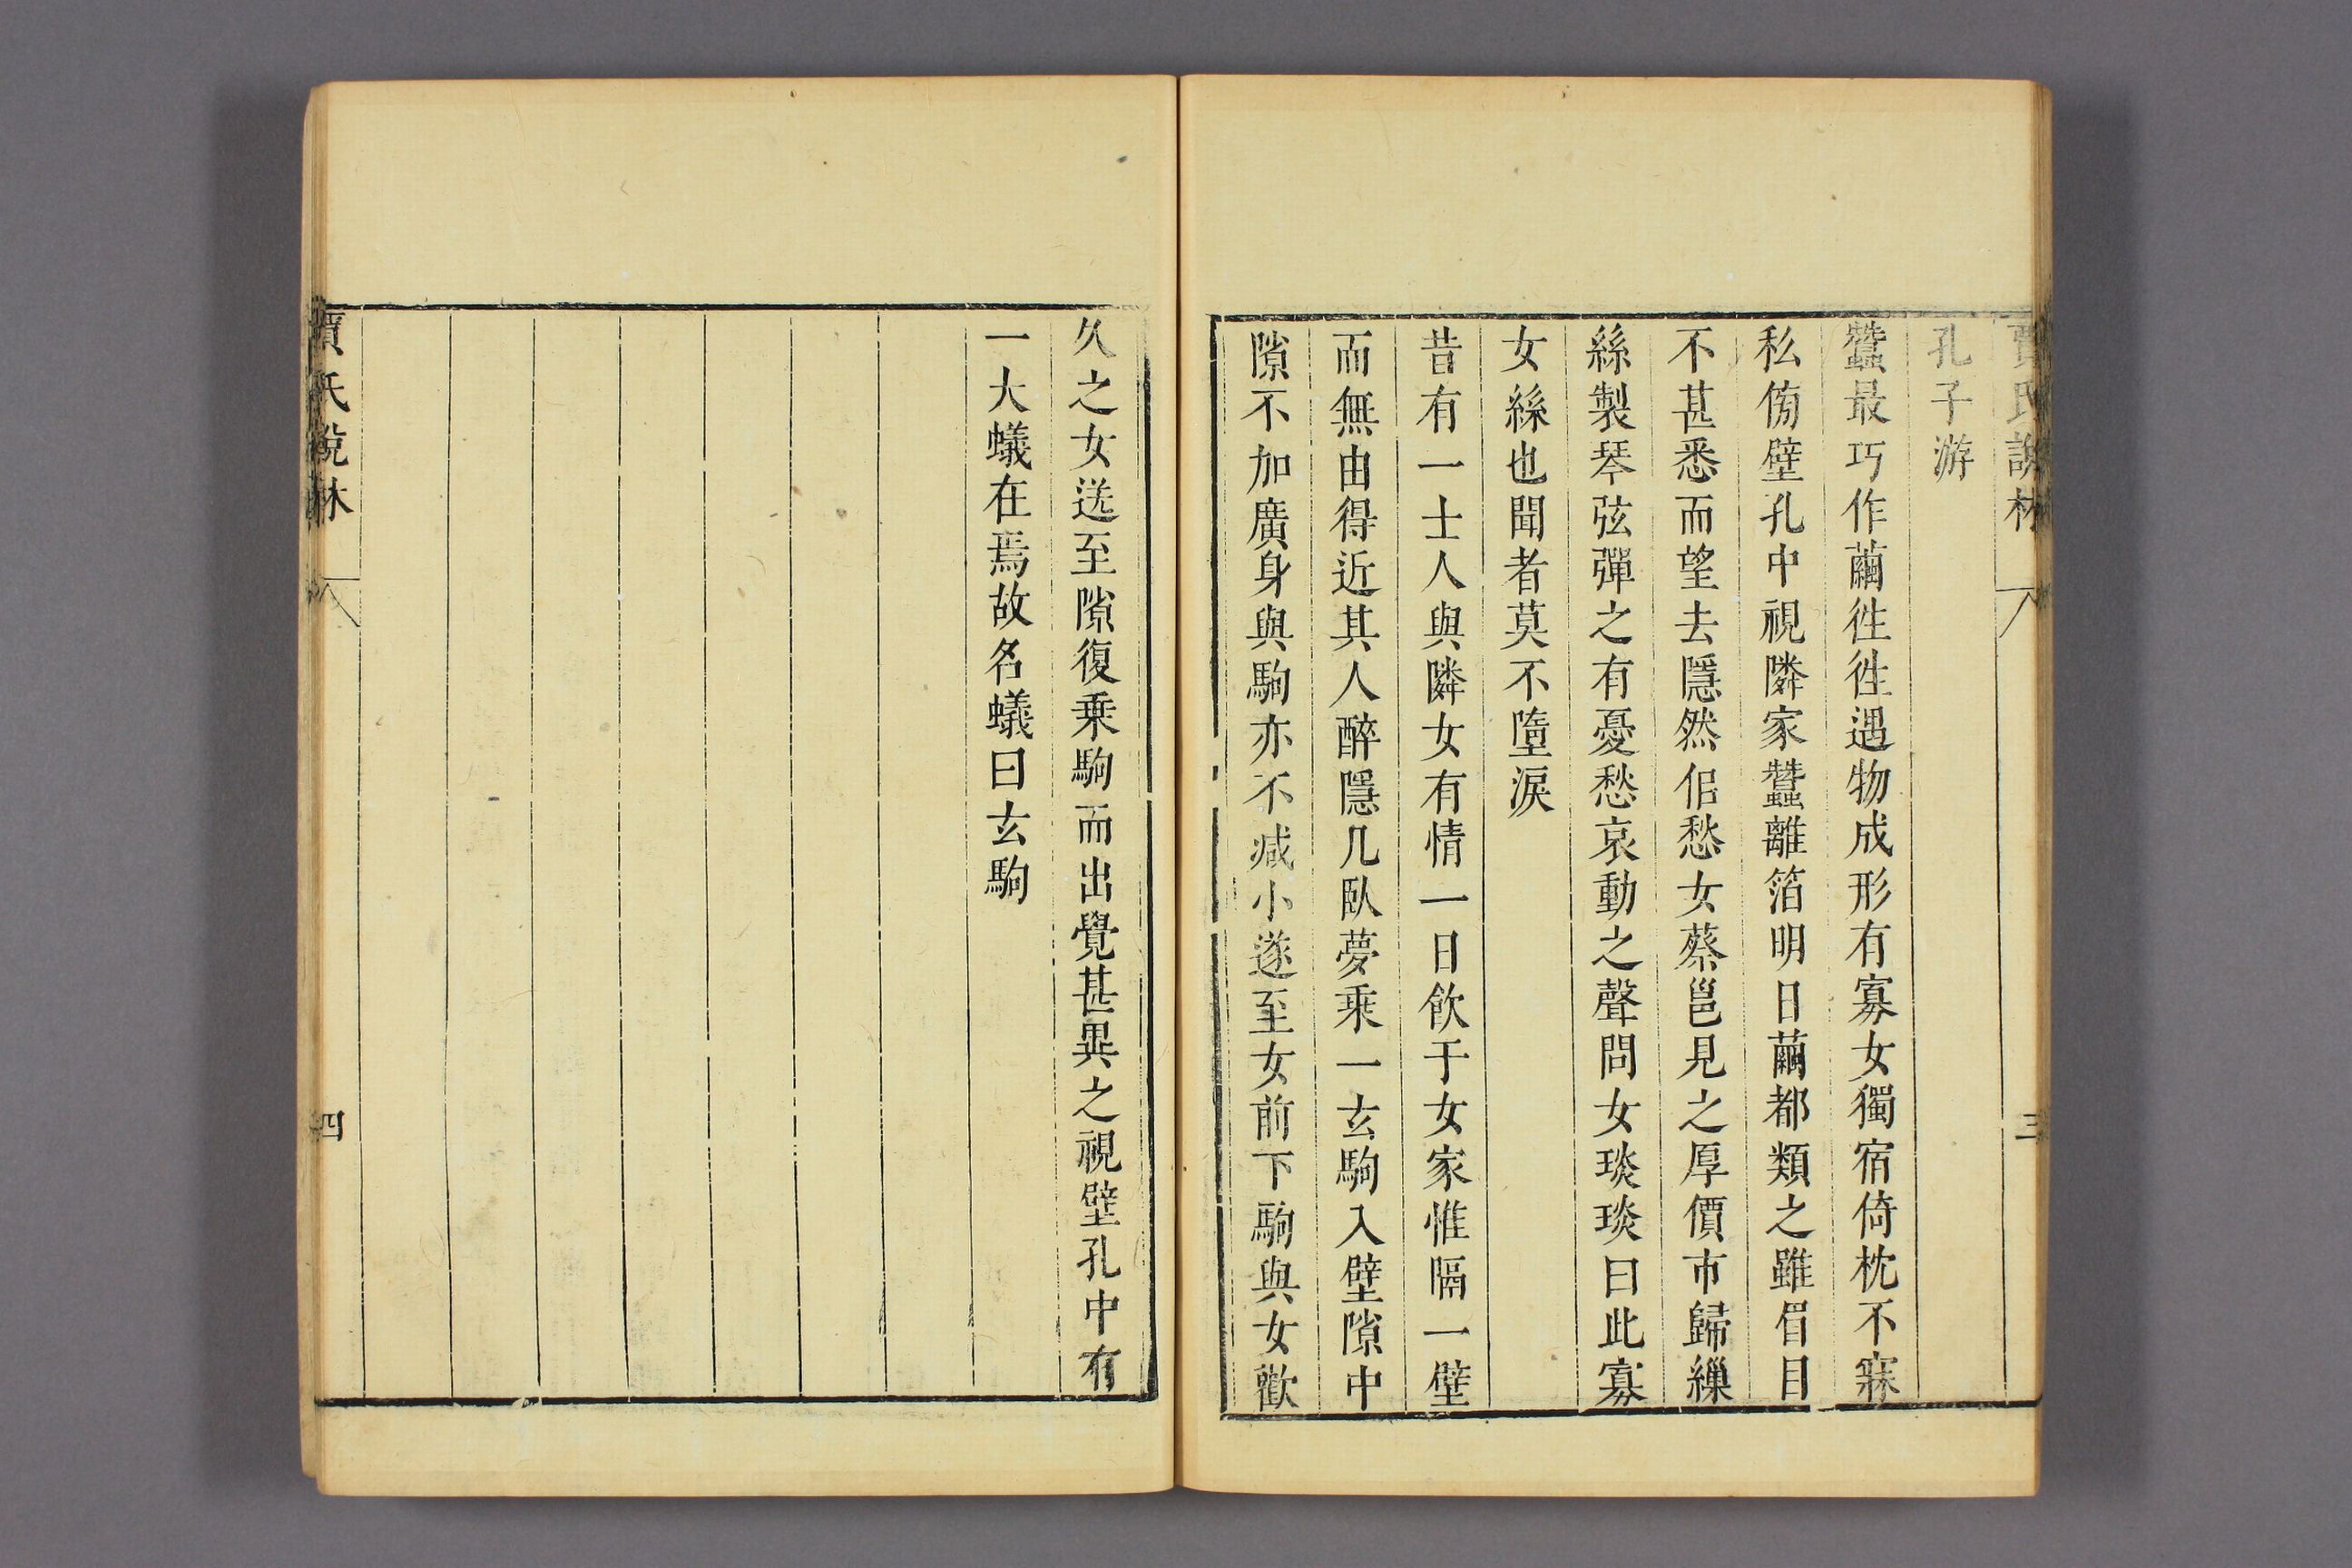 賈氏說林
三
孔子游
蠶最巧作繭徃徃遇物成形有寡女獨宿倚枕不寐
私傍壁孔中視隣家蠶離箔明日繭都類之雖眉目
不甚悉而望去隱然似愁女蔡邕見之厚價市歸繅
絲製琴弦彈之有憂愁哀動之聲問女琰琰曰此寡
女絲也聞者莫不墮淚
昔有一士人與隣女有情一日飲于女家惟隔一壁
而無由得近其人醉隱几臥夢乘一玄駒入壁隙中
隙不加廣身與駒亦不减小遂至女前下駒與女歡
久之女送至隙復乗駒而出覺甚異之視壁孔中有
一大蟻在焉故名蟻曰玄駒
賈氏說林
四